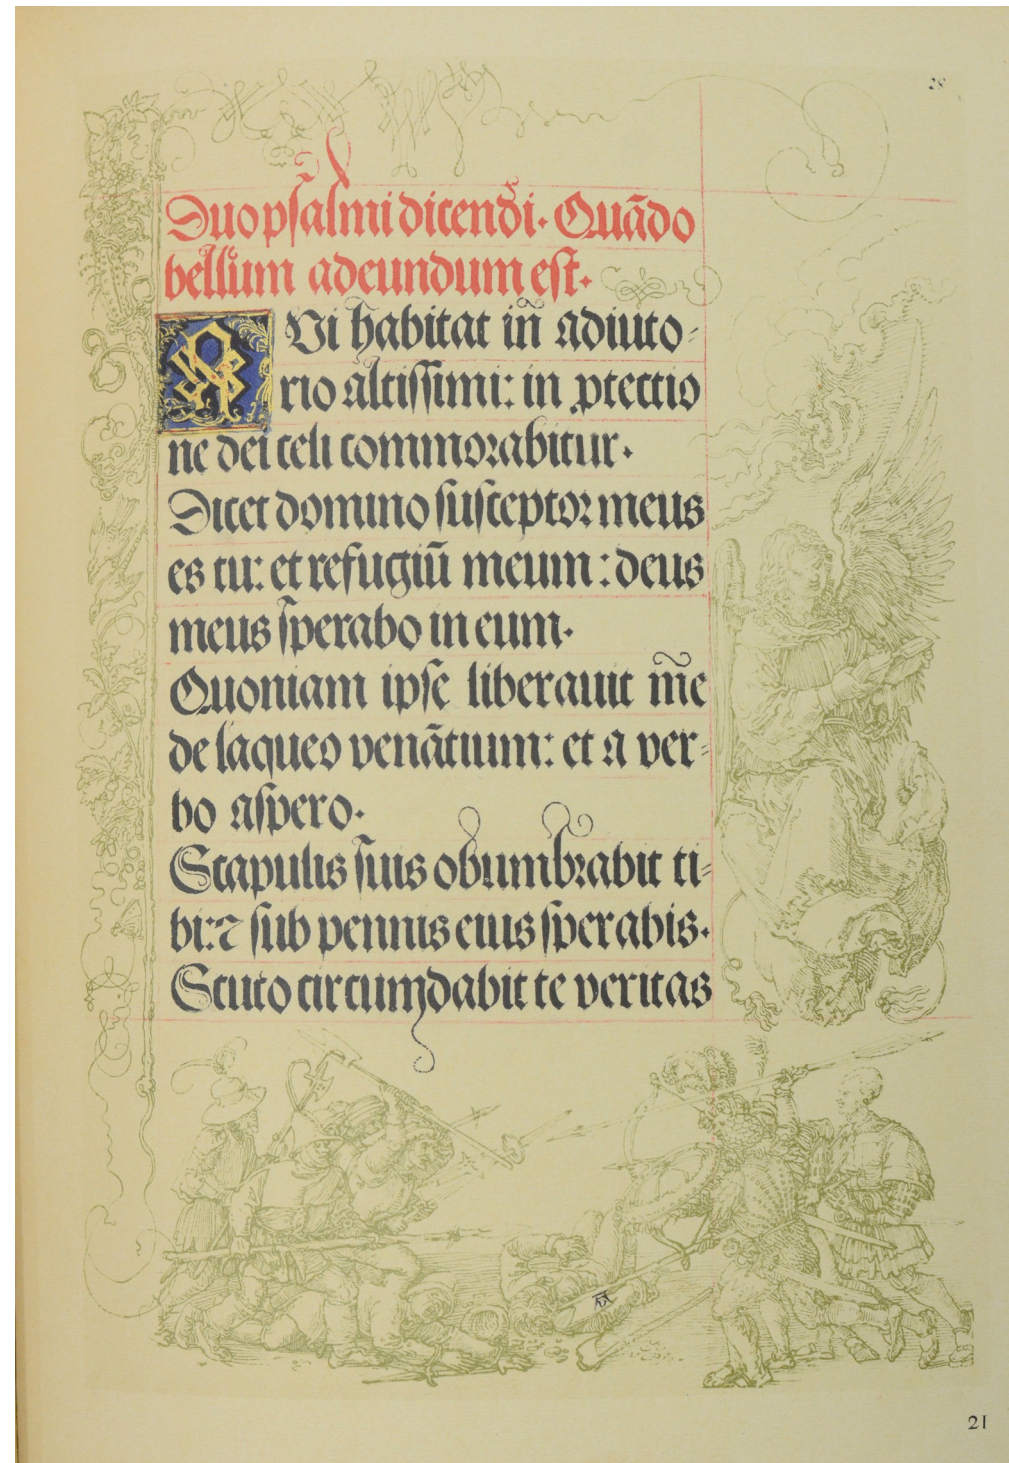 28
Duo psalmi dicendi. Quādo
bellum adeundum est.
QVi habitat in̄ adiuto-
rio altissimi: in ꝓtectio
ne dei celi commorabitur.
Dicet domino susceptor meus
es tu: et refugiū meum: deus
meus sperabo in eum.
Quoniam ipse liberauit me
de laqueo venātium: et a ver-
bo aspero.
Scapulis suis obumbrabit ti-
bi: ⁊ sub pennis eius sperabis.
Scuto circumdabit te veritas
AD
21